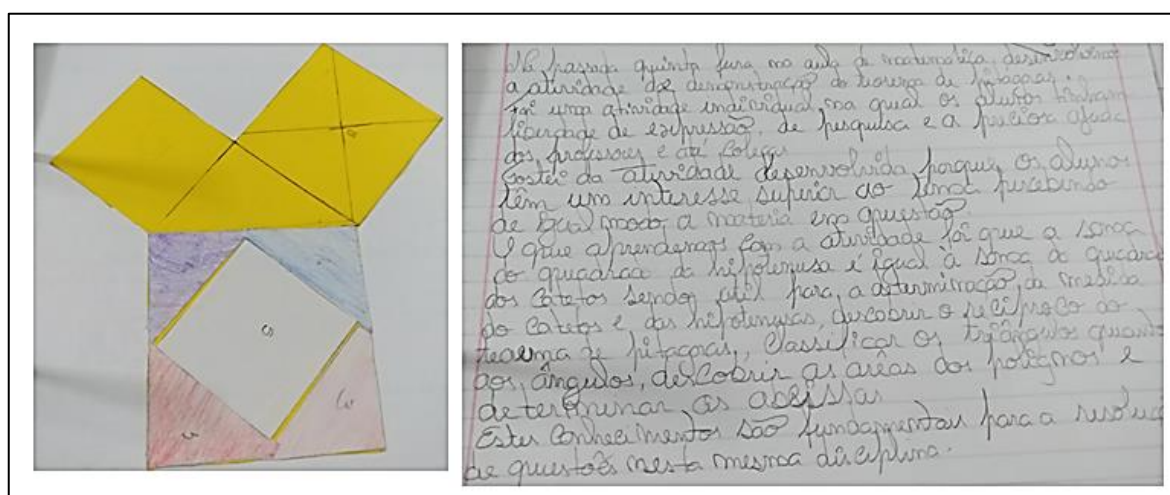 Na passada quinta feira na aula de matemática, desenvolvemos
a atividade de demonstração do teorema de pitagoras.
Foi uma atividade individual, na qual os alunos tinham
liberdade de expressão, de pesquisa e a preciosa ajuda
dos professores e até colegas
Gostei da atividade desenvolvida porque, os alunos
têm um interesse superior ao tema percebendo
de qual modo a materia em questão.
O que aprendemos com a atividade foi que a soma
do quadrado da hipotenusa é igual à soma do quadrado
dos catetos sendo útil para, a determinação da medida
do catetos e, das hipotenusas, descobrir o recíproco do
teorema de pitagoras, classificar os triângulos quanto
aos, ângulos, descobrir as áreas dos polígnos e
determinar as abcissas
Estes conhecimentos são fundamentais para a
de questões nesta mesma disciplina.
5